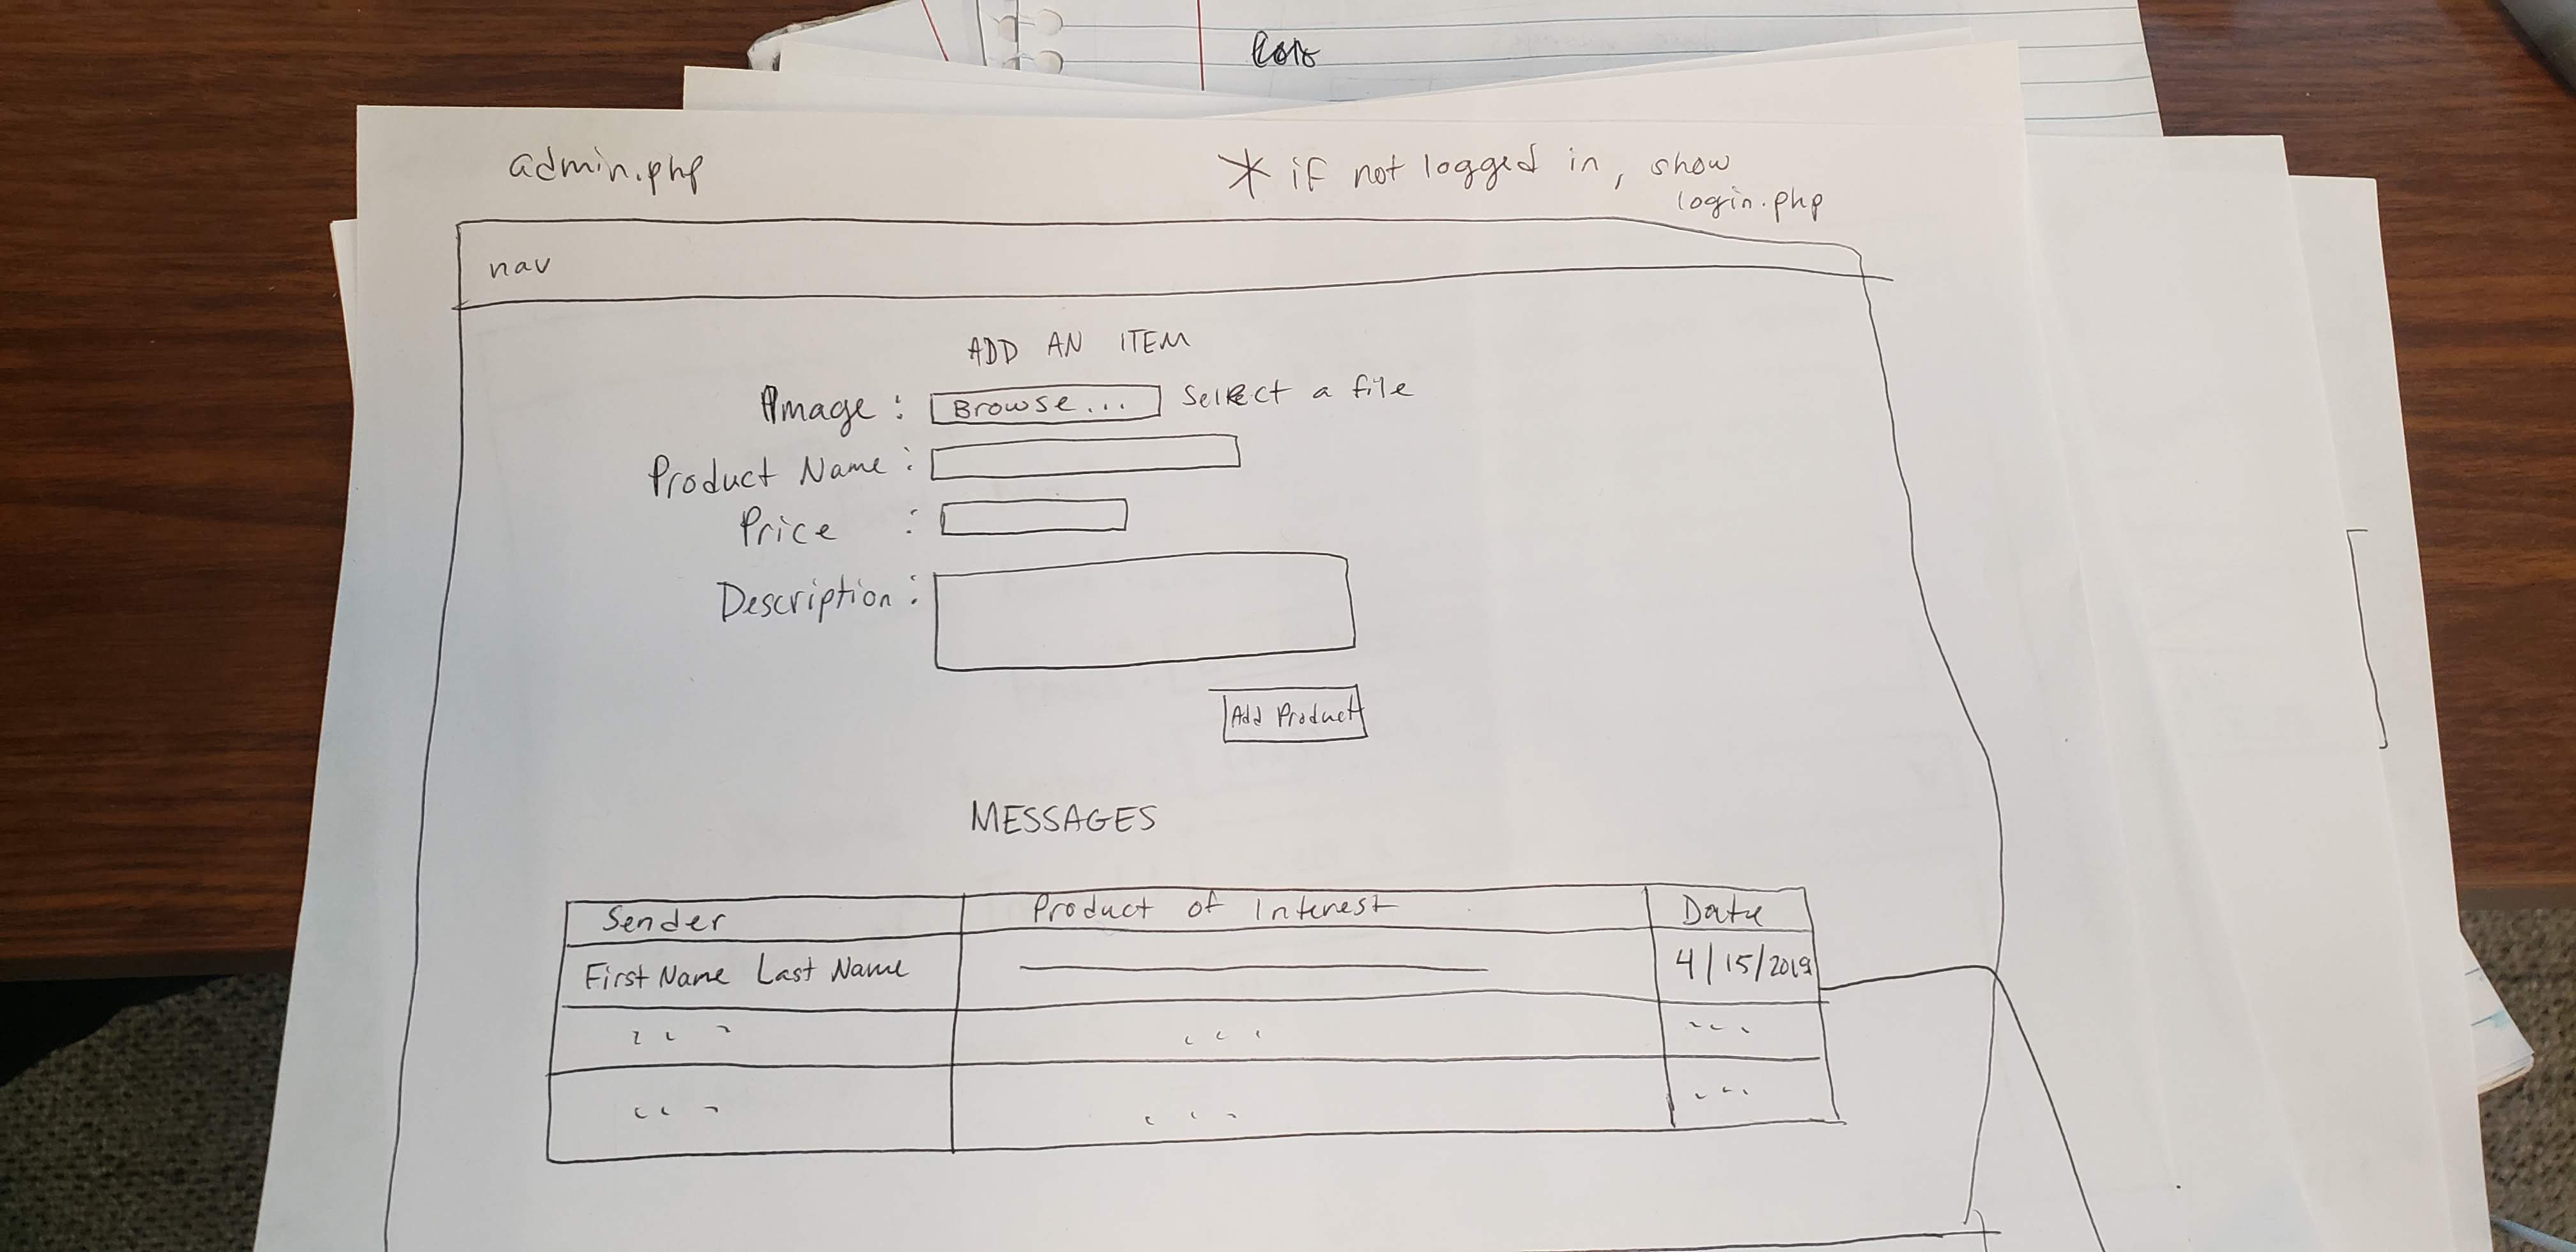 admin.php
* if not logged in, show
login.php
nav
ADD AN ITEM
Image : Browse... Select a file
Product Name :
Price :
Description :
Add Product
MESSAGES
Sender Product of Interest Date
First Name Last Name 4/15/2019
... ... ...
... ... ...